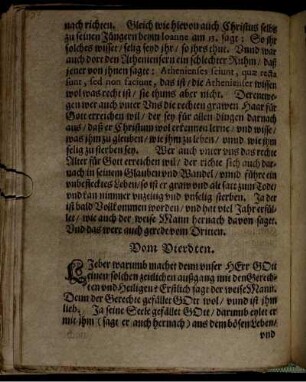 nach richten. Gleich wie hievon auch Christus selbst
zu seinen Jüngern beym Joanne am 13. sagt: So jhr
solches wisset/ selig seyd jhr/ so jhrs thut. Vnnd war
auch dort den Atheniensern ein schlechter Ruhm/ daß
jener von jhnen sagte: Athenienses sciunt, quæ recta
sunt, sed non faciunt, das ist/ die Athenienser wissen
wol was recht ist/ sie thuns aber nicht. Derentwe-
gen wer auch vnter Vns die rechten grawen Haar für
Gott erreichen wil/ der sey für allen dingen darnach
aus/ daß er Christum wol erkennen lerne/ vnd wisse/
was jhm zu gleuben/ wie jhm zu leben/ vnnd wie jhm
selig zu sterben sey. Wer auch vnter vns das rechte
Alter für Gott erreichen wil/ der richte sich auch dar-
nach in seinem Glauben vnd Wandel/ vnnd führe ein
vnbeflecktes Leben/ so ist er graw vnd alt satt zum Tode/
vnd kan nimmer vnzeitig vnd vnselig sterben. Ja der
ist bald Vollkommen worden/ vnd hat viel Jahr erfül-
let/ wie auch der weise Mann hernach davon saget.
Vnd das were auch geredt vom Dritten.
Vom Vierdten.
Lieber warumb machet denn vnser HErr GOtt
einen solchen zeitlichen außgang mit dem Gerech-
ten vnd Heiligen? Erstlich sagt der weise Mann.
Denn der Gerechte gefället GOtt wol/ vnnd ist jhm
lieb. Ja seine Seele gefället GOtt/ darumb eylet er
mit jhm (sagt er auch hernach) aus dem bösen Leben/
vnd